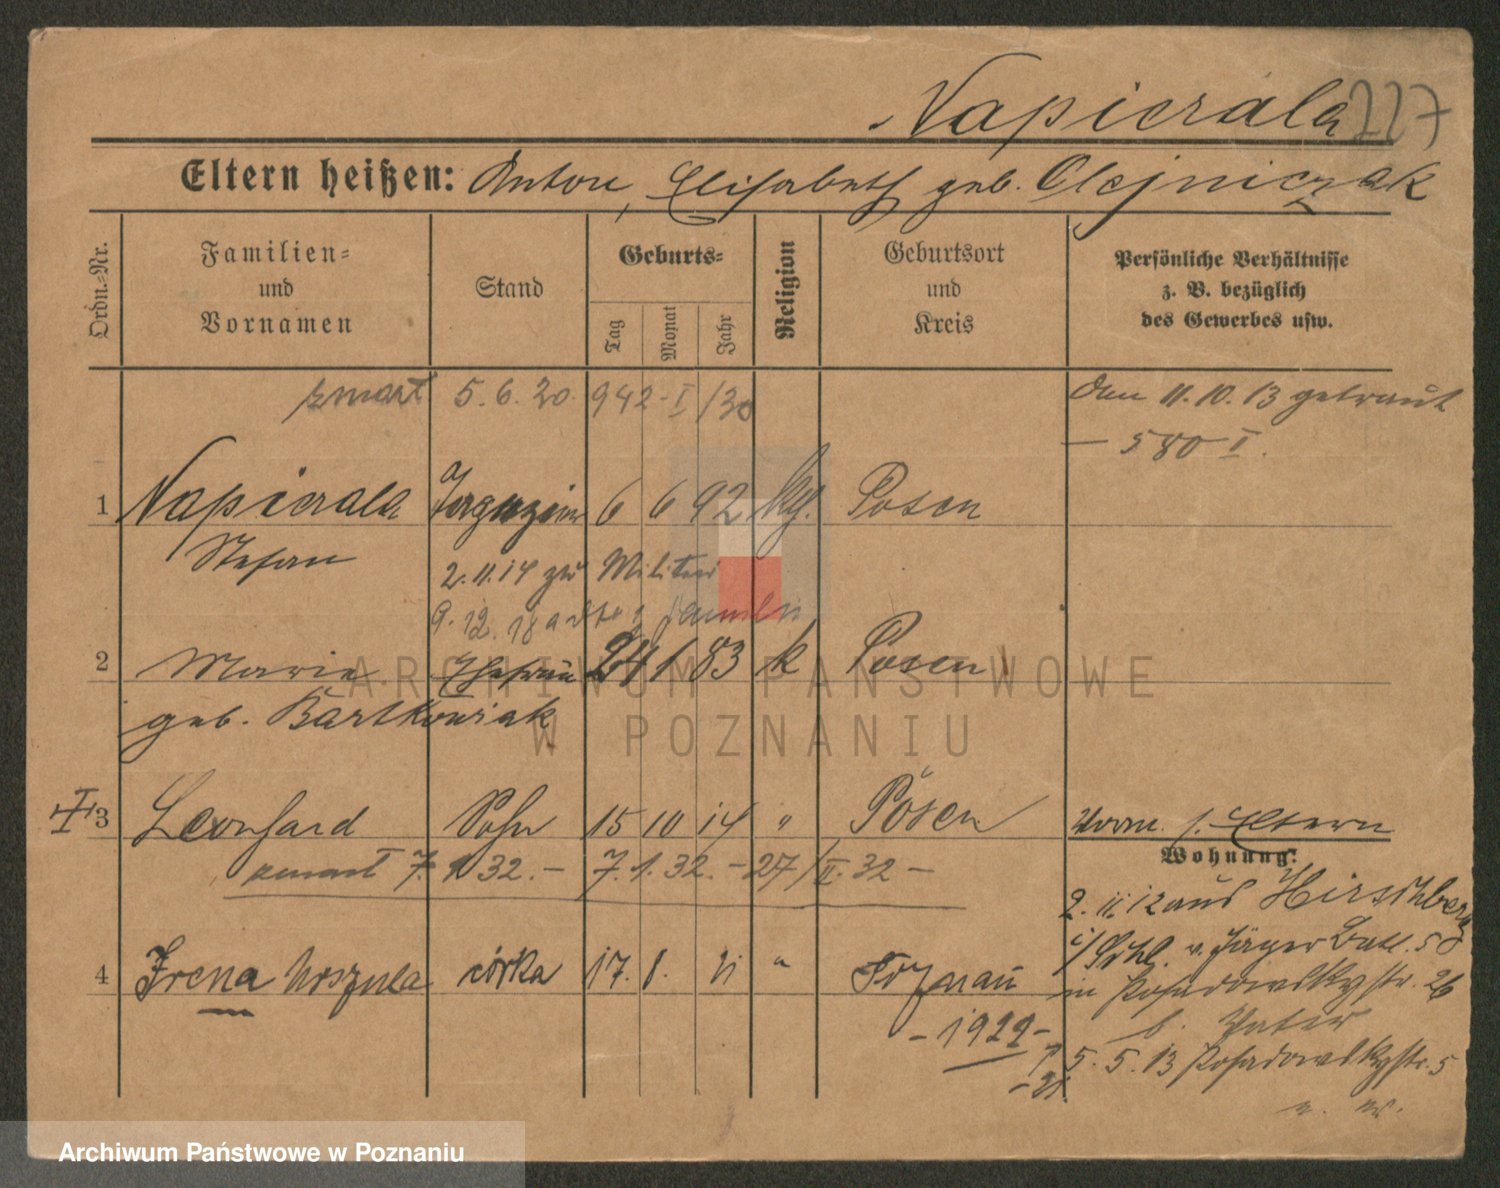 Napierala 227
Eltern heißen: Anton, Elisabeth geb. Olejniczak
Ordn.-Nr.
Familien-
und
Vornamen
Stand
Geburts-
Tag
Monat
Jahr
Religion
Geburtsort
und
Kreis
Persönliche Verhältnisse
z. B. bezüglich
des Gewerbes usw.
zmarł 5.6.20. 942-I/30
den 11.10.13 getraut
— 580 II.
1 Napierala 6 6 92 Posen
Stefan
2.11.14 zu Militär
9.12.18
2 Marie Ehefrau 24 1 83 k Posen
geb. Bartkowiak
3 Leonhard Sohn 15 10 14 " Posen
Vorm. s. Eltern
zmarł 7.1.32.- 7.1.32.-27/II.32-
Wohnung:
2.11.12 aus Hirschberg
i/Schl. v. Jäger Batl. 5
in Posadowskystr. 26
b. Vater
4 Irena Urszula córka 17. 1. 21 " Poznań
- 1922 -
5.5.13 Posadowskystr. 5
ARCHIWUM PAŃSTWOWE
W POZNANIU
Archiwum Państwowe w Poznaniu